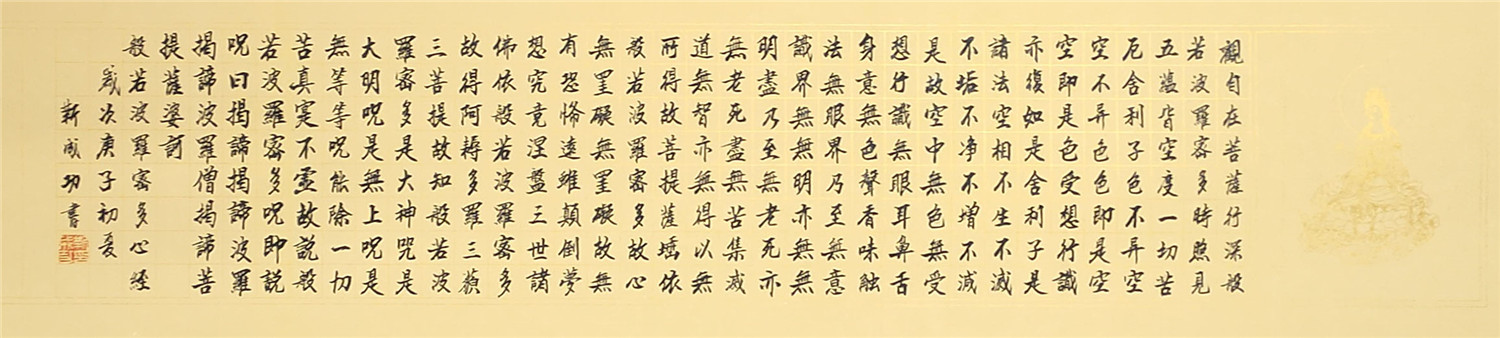 觀自在菩薩行深般
若波羅密多時照見
五蘊皆空度一切苦
厄舍利子色不异空
空不异色色即是空
空即是色受想行識
亦復如是舍利子是
諸法空相不生不滅
不垢不净不增不減
是故空中無色無受
想行識無眼耳鼻舌
身意無色聲香味觸
法無眼界乃至無意
識界無無明亦無無
明盡乃至無老死亦
無老死盡無苦集滅
道無智亦無得以無
所得故菩提薩埵依
般若波羅密多故心
無罣礙無罣礙故無
有恐怖遠離顛倒夢
想究竟涅盤三世諸
佛依般若波羅密多
故得阿耨多羅三藐
三菩提故知般若波
羅密多是大神咒是
大明咒是無上咒是
無等等咒能除一切
苦真実不虛故説般
若波羅密多咒即説
呪曰揭諦揭諦波羅
揭諦波羅僧揭諦菩
提薩婆訶
般若波羅密多心經
歲次庚子初夏
靳成功書